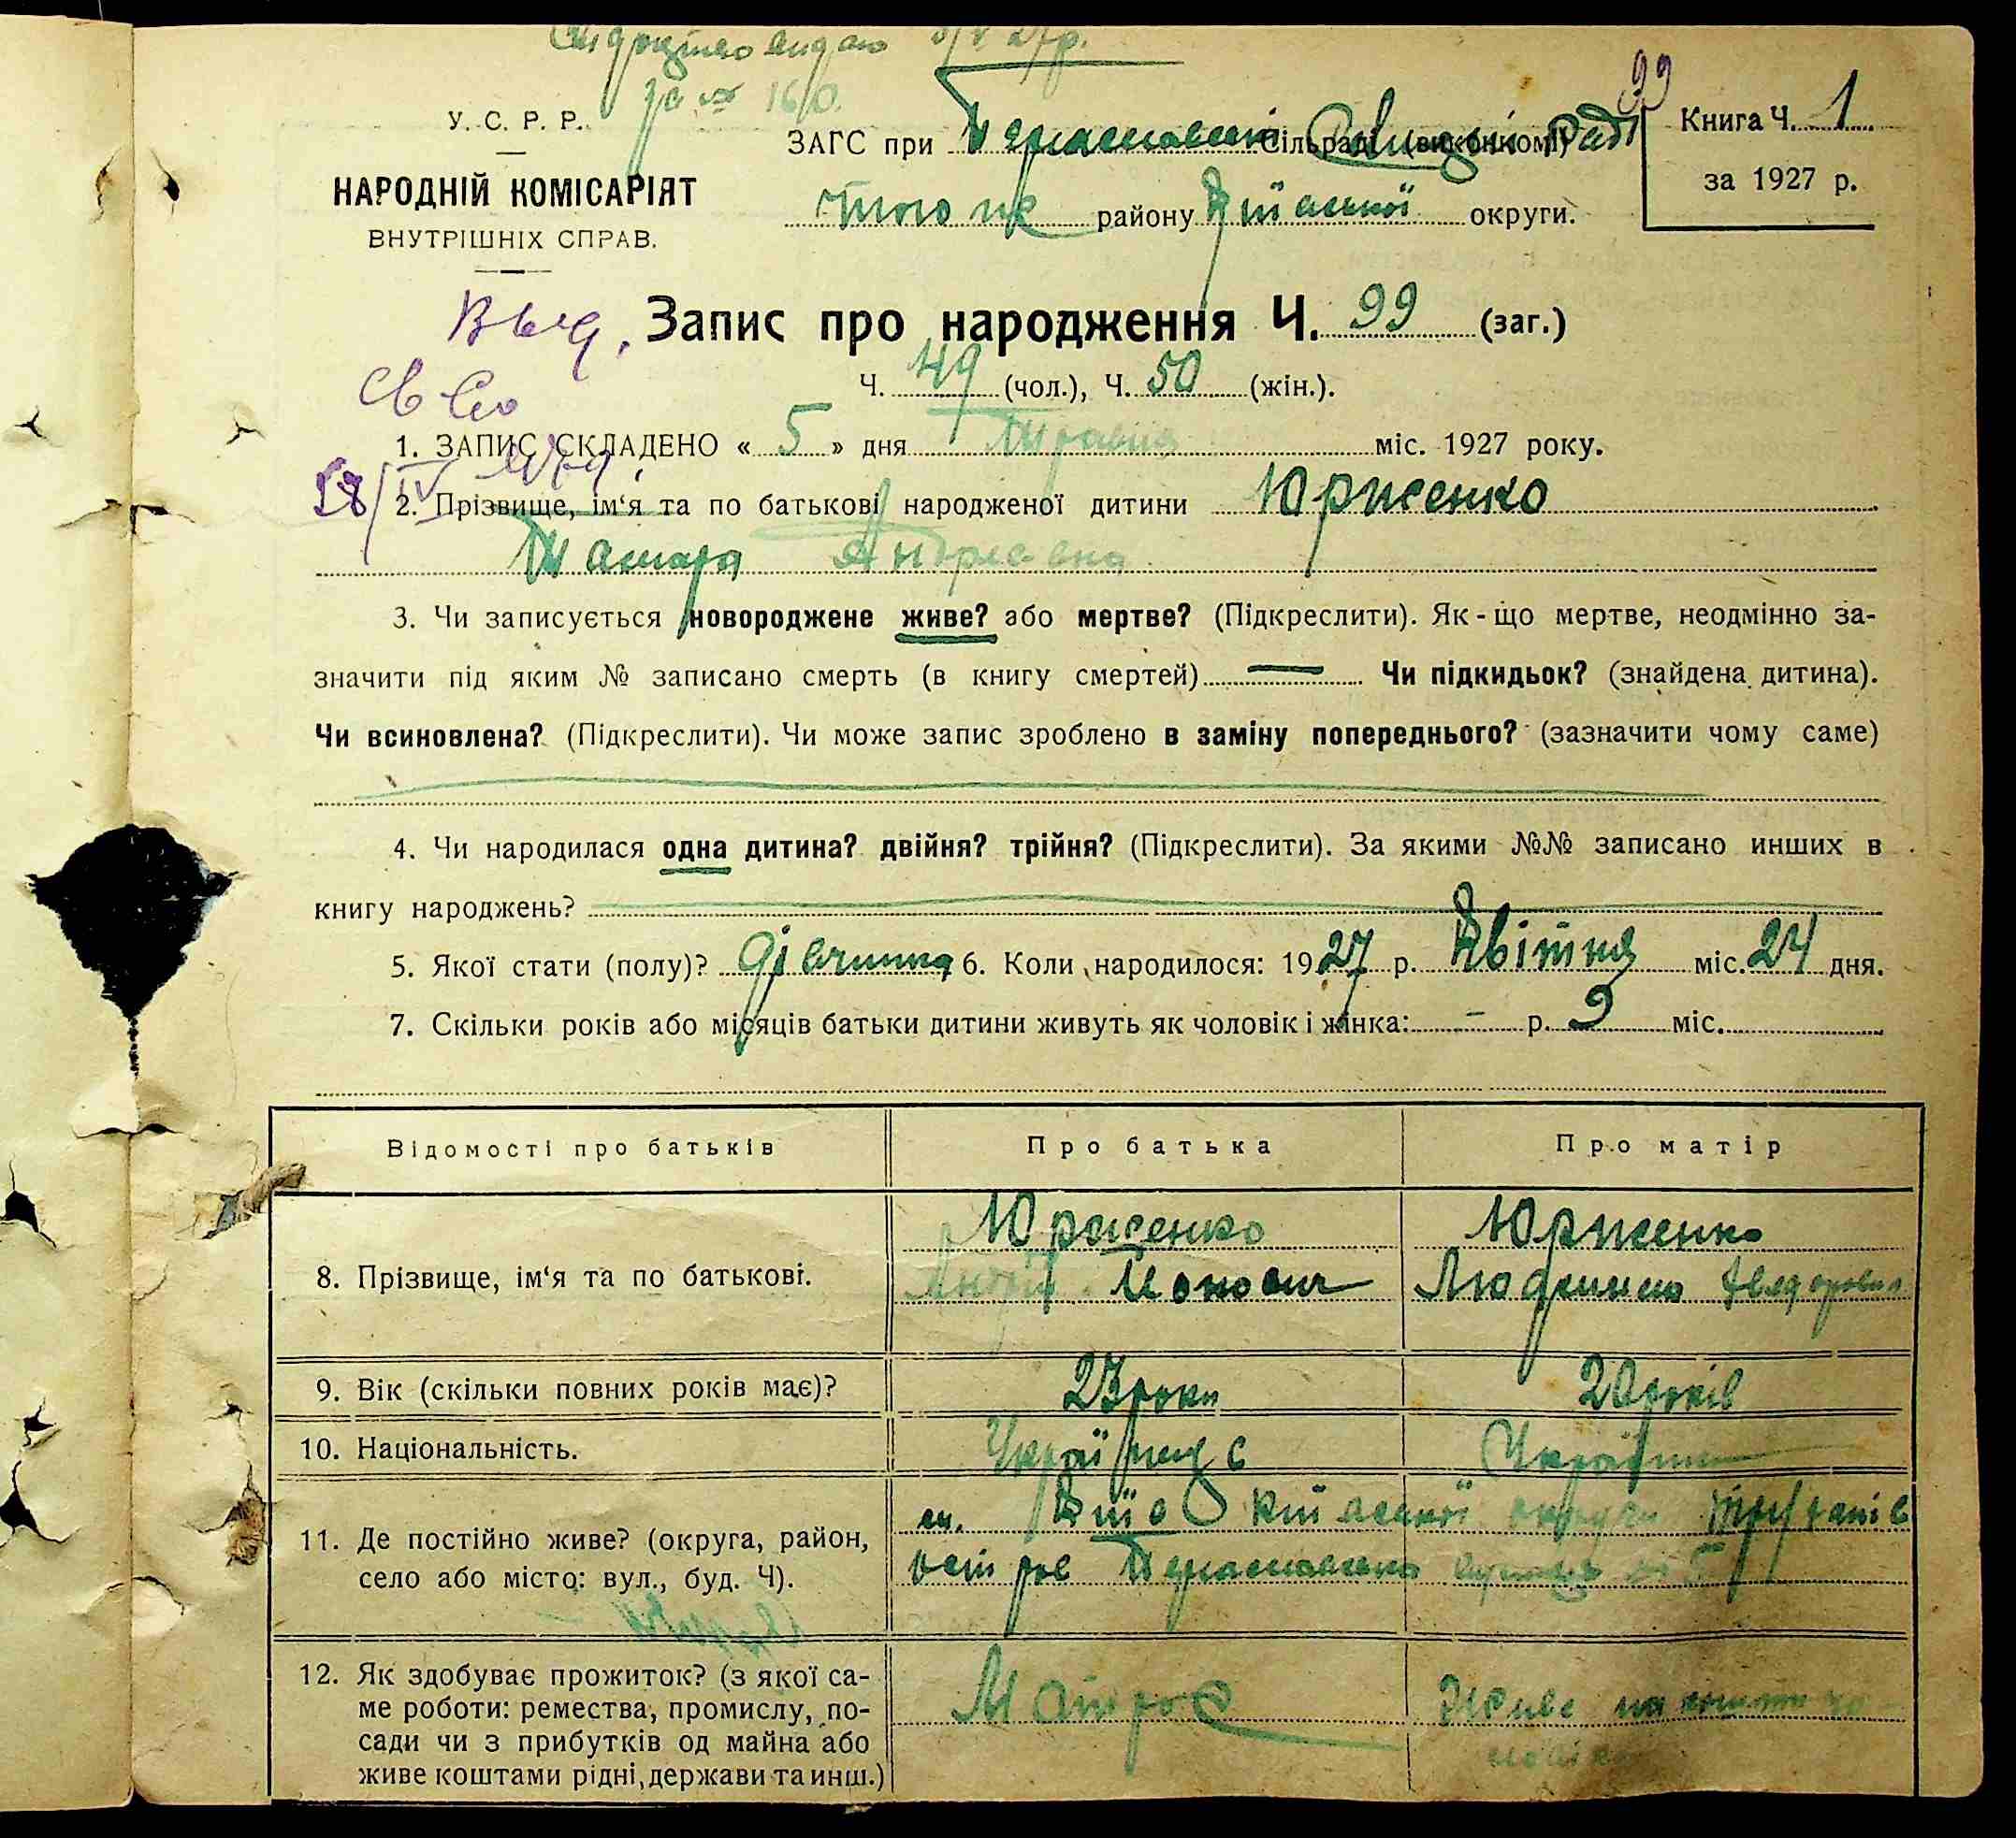 видано 5/V 27р.
за № 160.
99
У. С. Р. Р.
НАРОДНІЙ КОМІСАРІЯТ
ВНУТРІШНІХ СПРАВ.
ЗАГС при Сільраді (виконкомі) Раді
району Київської округи.
Книга Ч. 1
за 1927 р.
Запис про народження Ч. 99 (заг.)
Ч. 49 (чол.), Ч. 50 (жін.).
1. ЗАПИС СКЛАДЕНО « 5 » дня Травня міс. 1927 року.
2. Прізвище, ім‘я та по батькові народженої дитини Юрженко
Тамара Андріевна
3. Чи записується новороджене живе? або мертве? (Підкреслити). Як-що мертве, неодмінно за-
значити під яким № записано смерть (в книгу смертей) — Чи підкидьок? (знайдена дитина).
Чи всиновлена? (Підкреслити). Чи може запис зроблено в заміну попереднього? (зазначити чому саме)
4. Чи народилася одна дитина? двійня? трійня? (Підкреслити). За якими №№ записано инших в
книгу народжень?
5. Якої стати (полу)? дівчинка 6. Коли народилося: 1927 р. Квітня міс. 24 дня.
7. Скільки років або місяців батьки дитини живуть як чоловік і жінка: - р. 9 міс.
Відомості про батьків
Про батька
Про матір
8. Прізвище, ім‘я та по батькові.
Юрженко
Андрій
Юрженко
Людмила
9. Вік (скільки повних років має)?
23 роки
20 років
10. Національність.
Українець
Українка
11. Де постійно живе? (округа, район,
село або місто: вул., буд. Ч).
м. Київ Київської округи Труханів
острів
12. Як здобуває прожиток? (з якої са-
ме роботи: ремества, промислу, по-
сади чи з прибутків од майна або
живе коштами рідні, держави та инш.)
Матрос
Живе на кошти чо
ловіка